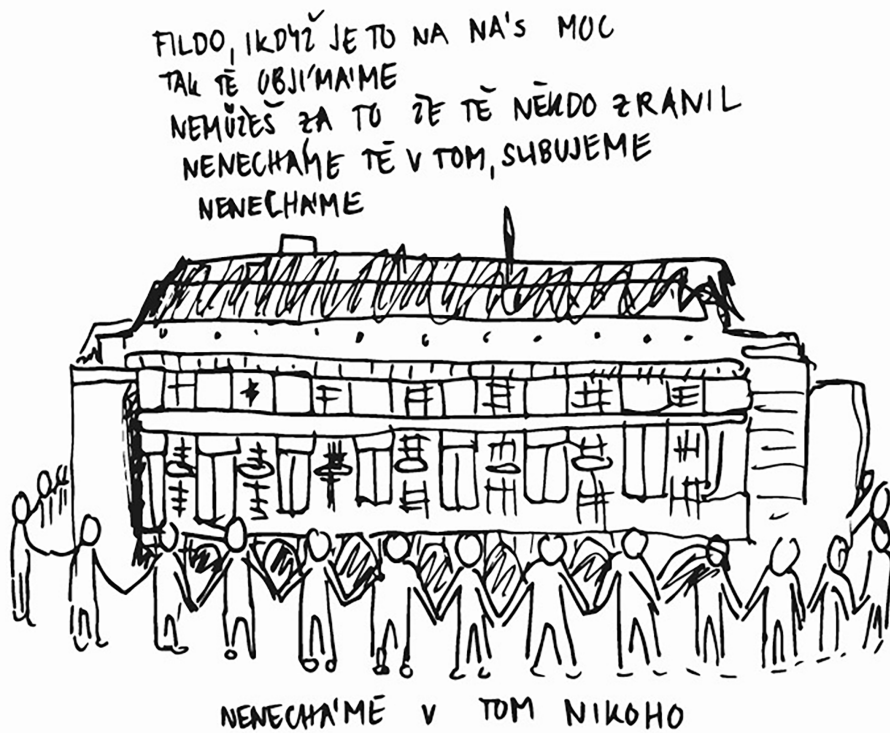 FILDO, IKDYŽ JE TO NA NÁS MOC
TAK TĚ OBJÍMÁME
NEMŮŽEŠ ZA TO ŽE TĚ NĚKDO ZRANIL
NENECHÁME TĚ V TOM, SLIBUJEME
NENECHÁME
NENECHÁME V TOM NIKOHO